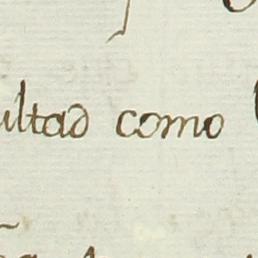 ultad como